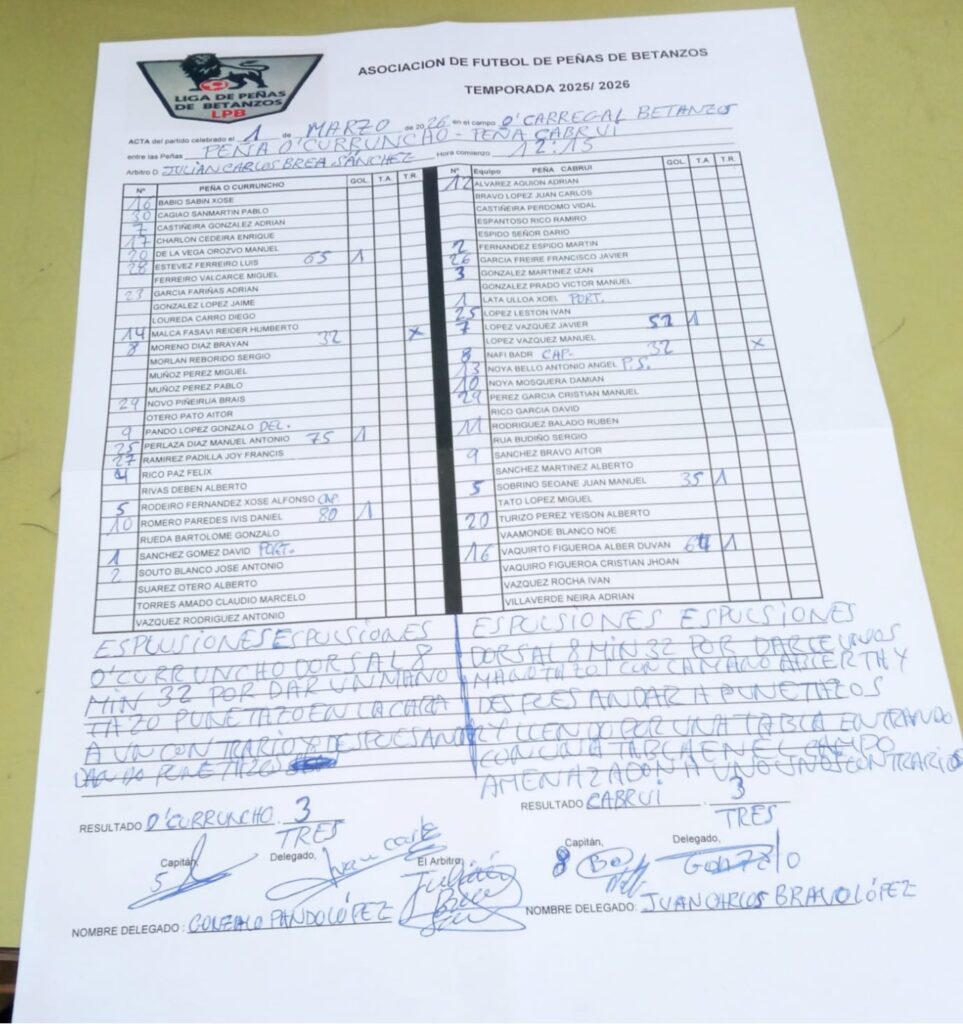 LIGA DE PEÑAS
DE BETANZOS
LPB
ASOCIACION DE FUTBOL DE PEÑAS DE BETANZOS
TEMPORADA 2025/ 2026
ACTA del partido celebrado el 1 de MARZO de 2026 en el campo O'CARREGAL BETANZOS
entre las Peñas PEÑA O'CURRUNCHO - PEÑA CABRUI
Arbitro D. JULIAN CARLOS BREA SÁNCHEZ Hora comienzo 12:15
Nº PEÑA O CURRUNCHO GOL T.A. T.R.
16 BABIO SABIN XOSE
30 CAGIAO SANMARTIN PABLO
7 CASTIÑEIRA GONZALEZ ADRIAN
17 CHARLON CEDEIRA ENRIQUE
20 DE LA VEGA OROZVO MANUEL
28 ESTEVEZ FERREIRO LUIS 65 1
FERREIRO VALCARCE MIGUEL
23 GARCIA FARIÑAS ADRIAN
GONZALEZ LOPEZ JAIME
LOUREDA CARRO DIEGO
14 MALCA FASAVI REIDER HUMBERTO
8 MORENO DIAZ BRAYAN 32 x
MORLAN REBORIDO SERGIO
MUÑOZ PEREZ MIGUEL
MUÑOZ PEREZ PABLO
29 NOVO PIÑEIRUA BRAIS
OTERO PATO AITOR
9 PANDO LOPEZ GONZALO DEL.
25 PERLAZA DIAZ MANUEL ANTONIO 75 1
27 RAMIREZ PADILLA JOY FRANCIS
4 RICO PAZ FELIX
RIVAS DEBEN ALBERTO
5 RODEIRO FERNANDEZ XOSE ALFONSO CAP.
10 ROMERO PAREDES IVIS DANIEL 80 1
RUEDA BARTOLOME GONZALO
1 SANCHEZ GOMEZ DAVID PORT.
2 SOUTO BLANCO JOSE ANTONIO
SUAREZ OTERO ALBERTO
TORRES AMADO CLAUDIO MARCELO
VAZQUEZ RODRIGUEZ ANTONIO
Nº Equipo PEÑA CABRUI GOL T.A. T.R.
12 ALVAREZ AQUION ADRIAN
BRAVO LOPEZ JUAN CARLOS
CASTIÑEIRA PERDOMO VIDAL
ESPANTOSO RICO RAMIRO
ESPIDO SEÑOR DARIO
2 FERNANDEZ ESPIDO MARTIN
26 GARCIA FREIRE FRANCISCO JAVIER
3 GONZALEZ MARTINEZ IZAN
GONZALEZ PRADO VICTOR MANUEL
1 LATA ULLOA XOEL PORT.
25 LOPEZ LESTON IVAN
7 LOPEZ VAZQUEZ JAVIER 52 1
LOPEZ VAZQUEZ MANUEL
8 NAFI BADR CAP. 32 x
13 NOYA BELLO ANTONIO ANGEL P.S.
10 NOYA MOSQUERA DAMIAN
29 PEREZ GARCIA CRISTIAN MANUEL
RICO GARCIA DAVID
11 RODRIGUEZ BALADO RUBEN
RUA BUDIÑO SERGIO
9 SANCHEZ BRAVO AITOR
SANCHEZ MARTINEZ ALBERTO
5 SOBRINO SEOANE JUAN MANUEL 35 1
TATO LOPEZ MIGUEL
20 TURIZO PEREZ YEISON ALBERTO
VAAMONDE BLANCO NOE
16 VAQUIRTO FIGUEROA ALBER DUVAN 64 1
VAQUIRO FIGUEROA CRISTIAN JHOAN
VAZQUEZ ROCHA IVAN
VILLAVERDE NEIRA ADRIAN
ESPULSIONES ESPULSIONES
O'CURRUNCHO DORSAL 8
MIN 32 POR DAR UN MANO
TAZO PUNETAZO EN LA CARA
A UN CONTRARIO Y DESPUES ANDAR
DANDO PUNETAZO
ESPULSIONES ESPULSIONES
DORSAL 8 MIN 32 POR DARLE UNOS
MANOTAZO CON LA MANO ABIERTA Y
DESPUES ANDAR A PUNETAZOS
Y LLENDO POR UNA TABLA ENTRANDO
CON UNA TABLA EN EL CAMPO
AMENAZADON A UNO UNOS CONTRARIOS
RESULTADO O'CURRUNCHO. 3
TRES
RESULTADO CABRUI . 3
TRES
Capitán, Delegado, El Arbitro
5
Capitán, Delegado,
8
NOMBRE DELEGADO : GONZALO PANDO LÓPEZ
NOMBRE DELEGADO: JUAN CARLOS BRAVO LÓPEZ